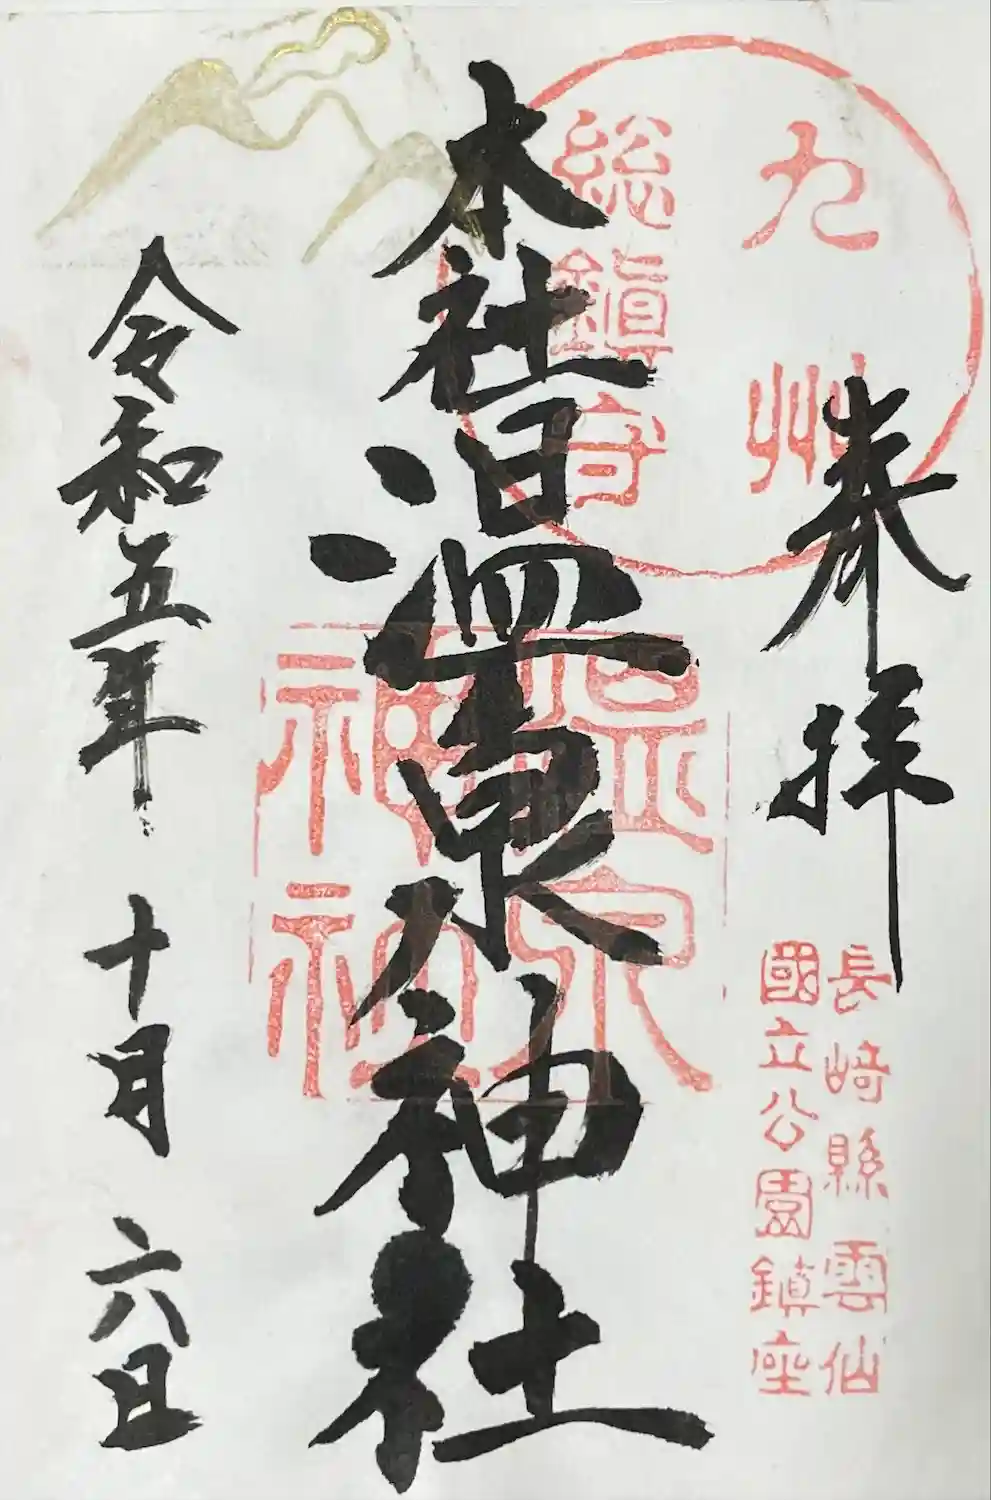 奉拝
九州
総鎮守
長崎縣雲仙
國立公園鎮座
本社温泉神社
温泉
神社
令和五年 十月 六日